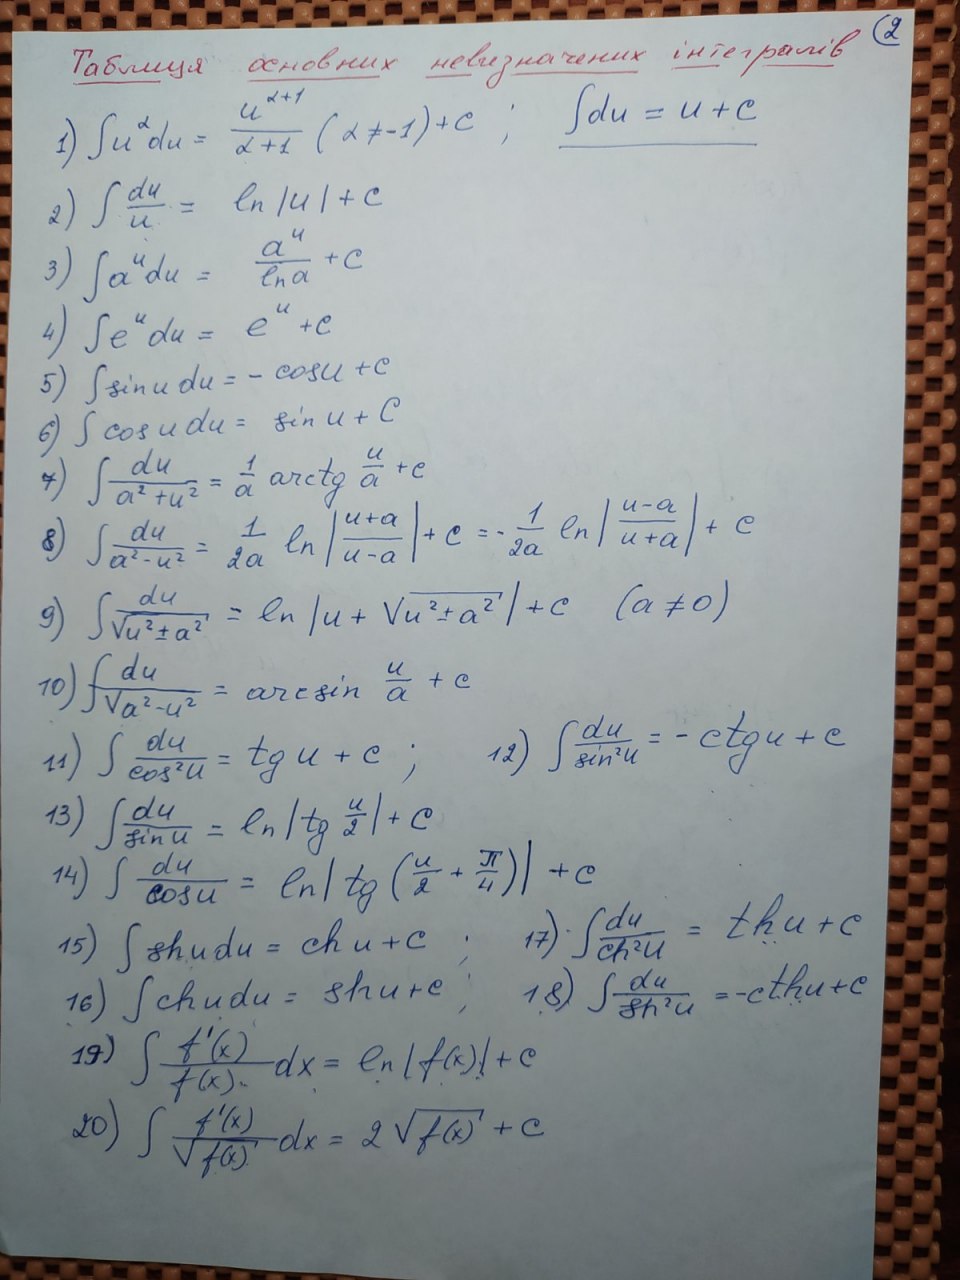 (2
Таблиця основних невизначених інтегралів
1) ∫u^α du = u^(α+1)/(α+1) (α ≠ -1) + c ; ∫du = u + c
2) ∫ du/u = ln |u| + c
3) ∫a^u du = a^u/ln a + c
4) ∫e^u du = e^u + c
5) ∫sin u du = - cos u + c
6) ∫cos u du = sin u + C
7) ∫ du/(a² + u²) = 1/a arctg u/a + c
8) ∫ du/(a² - u²) = 1/2a ln |(u+a)/(u-a)| + c = - 1/2a ln |(u-a)/(u+a)| + c
9) ∫ du/√(u² ± a²) = ln |u + √(u² ± a²)| + c (a ≠ 0)
10) ∫ du/√(a² - u²) = arcsin u/a + c
11) ∫ du/cos²u = tg u + c ; 12) ∫ du/sin²u = - ctg u + c
13) ∫ du/sin u = ln |tg u/2| + c
14) ∫ du/cos u = ln | tg (u/2 + π/4)| + c
15) ∫ sh u du = ch u + c ; 17) ∫ du/ch²u = th u + c
16) ∫ ch u du = sh u + c ; 18) ∫ du/sh²u = - cth u + c
19) ∫ f'(x)/f(x) dx = ln |f(x)| + c
20) ∫ f'(x)/√f(x) dx = 2 √f(x) + c